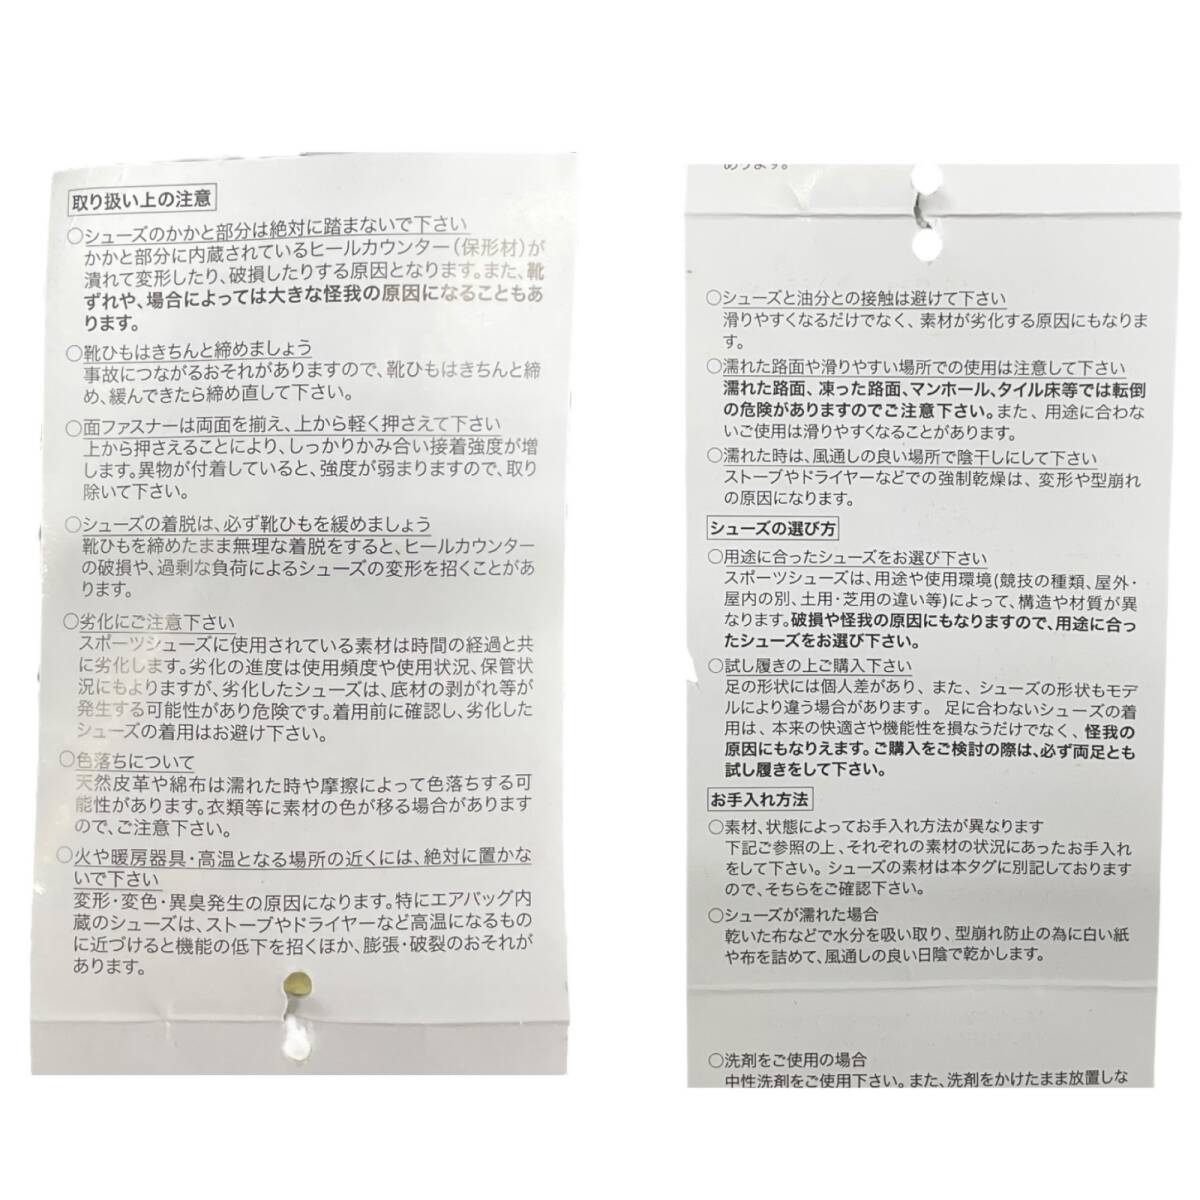 取り扱い上の注意
○シューズのかかと部分は絶対に踏まないで下さい
かかと部分に内蔵されているヒールカウンター(保形材)が
潰れて変形したり、破損したりする原因となります。また、靴
ずれや、場合によっては大きな怪我の原因になることもあ
ります。
○靴ひもはきちんと締めましょう
事故につながるおそれがありますので、靴ひもはきちんと締
め、緩んできたら締め直して下さい。
○面ファスナーは両面を揃え、上から軽く押さえて下さい
上から押さえることにより、しっかりかみ合い接着強度が増
します。異物が付着していると、強度が弱まりますので、取り
除いて下さい。
○シューズの着脱は、必ず靴ひもを緩めましょう
靴ひもを締めたまま無理な着脱をすると、ヒールカウンター
の破損や、過剰な負荷によるシューズの変形を招くことがあ
ります。
○劣化にご注意下さい
スポーツシューズに使用されている素材は時間の経過と共
に劣化します。劣化の進度は使用頻度や使用状況、保管状
況にもよりますが、劣化したシューズは、底材の剥がれ等が
発生する可能性があり危険です。着用前に確認し、劣化した
シューズの着用はお避け下さい。
○色落ちについて
天然皮革や綿布は濡れた時や摩擦によって色落ちする可
能性があります。衣類等に素材の色が移る場合があります
ので、ご注意下さい。
○火や暖房器具・高温となる場所の近くには、絶対に置かな
いで下さい
変形・変色・異臭発生の原因になります。特にエアバッグ内
蔵のシューズは、ストーブやドライヤーなど高温になるもの
に近づけると機能の低下を招くほか、膨張・破裂のおそれが
あります。
あります。
○シューズと油分との接触は避けて下さい
滑りやすくなるだけでなく、素材が劣化する原因にもなりま
す。
○濡れた路面や滑りやすい場所での使用は注意して下さい
濡れた路面、凍った路面、マンホール、タイル床等では転倒
の危険がありますのでご注意下さい。また、用途に合わな
いご使用は滑りやすくなることがあります。
○濡れた時は、風通しの良い場所で陰干しにして下さい
ストーブやドライヤーなどでの強制乾燥は、変形や型崩れ
の原因になります。
シューズの選び方
○用途に合ったシューズをお選び下さい
スポーツシューズは、用途や使用環境(競技の種類、屋外・
屋内の別、土用・芝用の違い等)によって、構造や材質が異
なります。破損や怪我の原因にもなりますので、用途に合っ
たシューズをお選び下さい。
○試し履きの上ご購入下さい
足の形状には個人差があり、また、シューズの形状もモデ
ルにより違う場合があります。足に合わないシューズの着
用は、本来の快適さや機能性を損なうだけでなく、怪我の
原因にもなりえます。ご購入をご検討の際は、必ず両足とも
試し履きをして下さい。
お手入れ方法
○素材、状態によってお手入れ方法が異なります
下記ご参照の上、それぞれの素材の状況にあったお手入れ
をして下さい。シューズの素材は本タグに別記しております
ので、そちらをご確認下さい。
○シューズが濡れた場合
乾いた布などで水分を吸い取り、型崩れ防止の為に白い紙
や布を詰めて、風通しの良い日陰で乾かします。
○洗剤をご使用の場合
中性洗剤をご使用下さい。また、洗剤をかけたまま放置しな